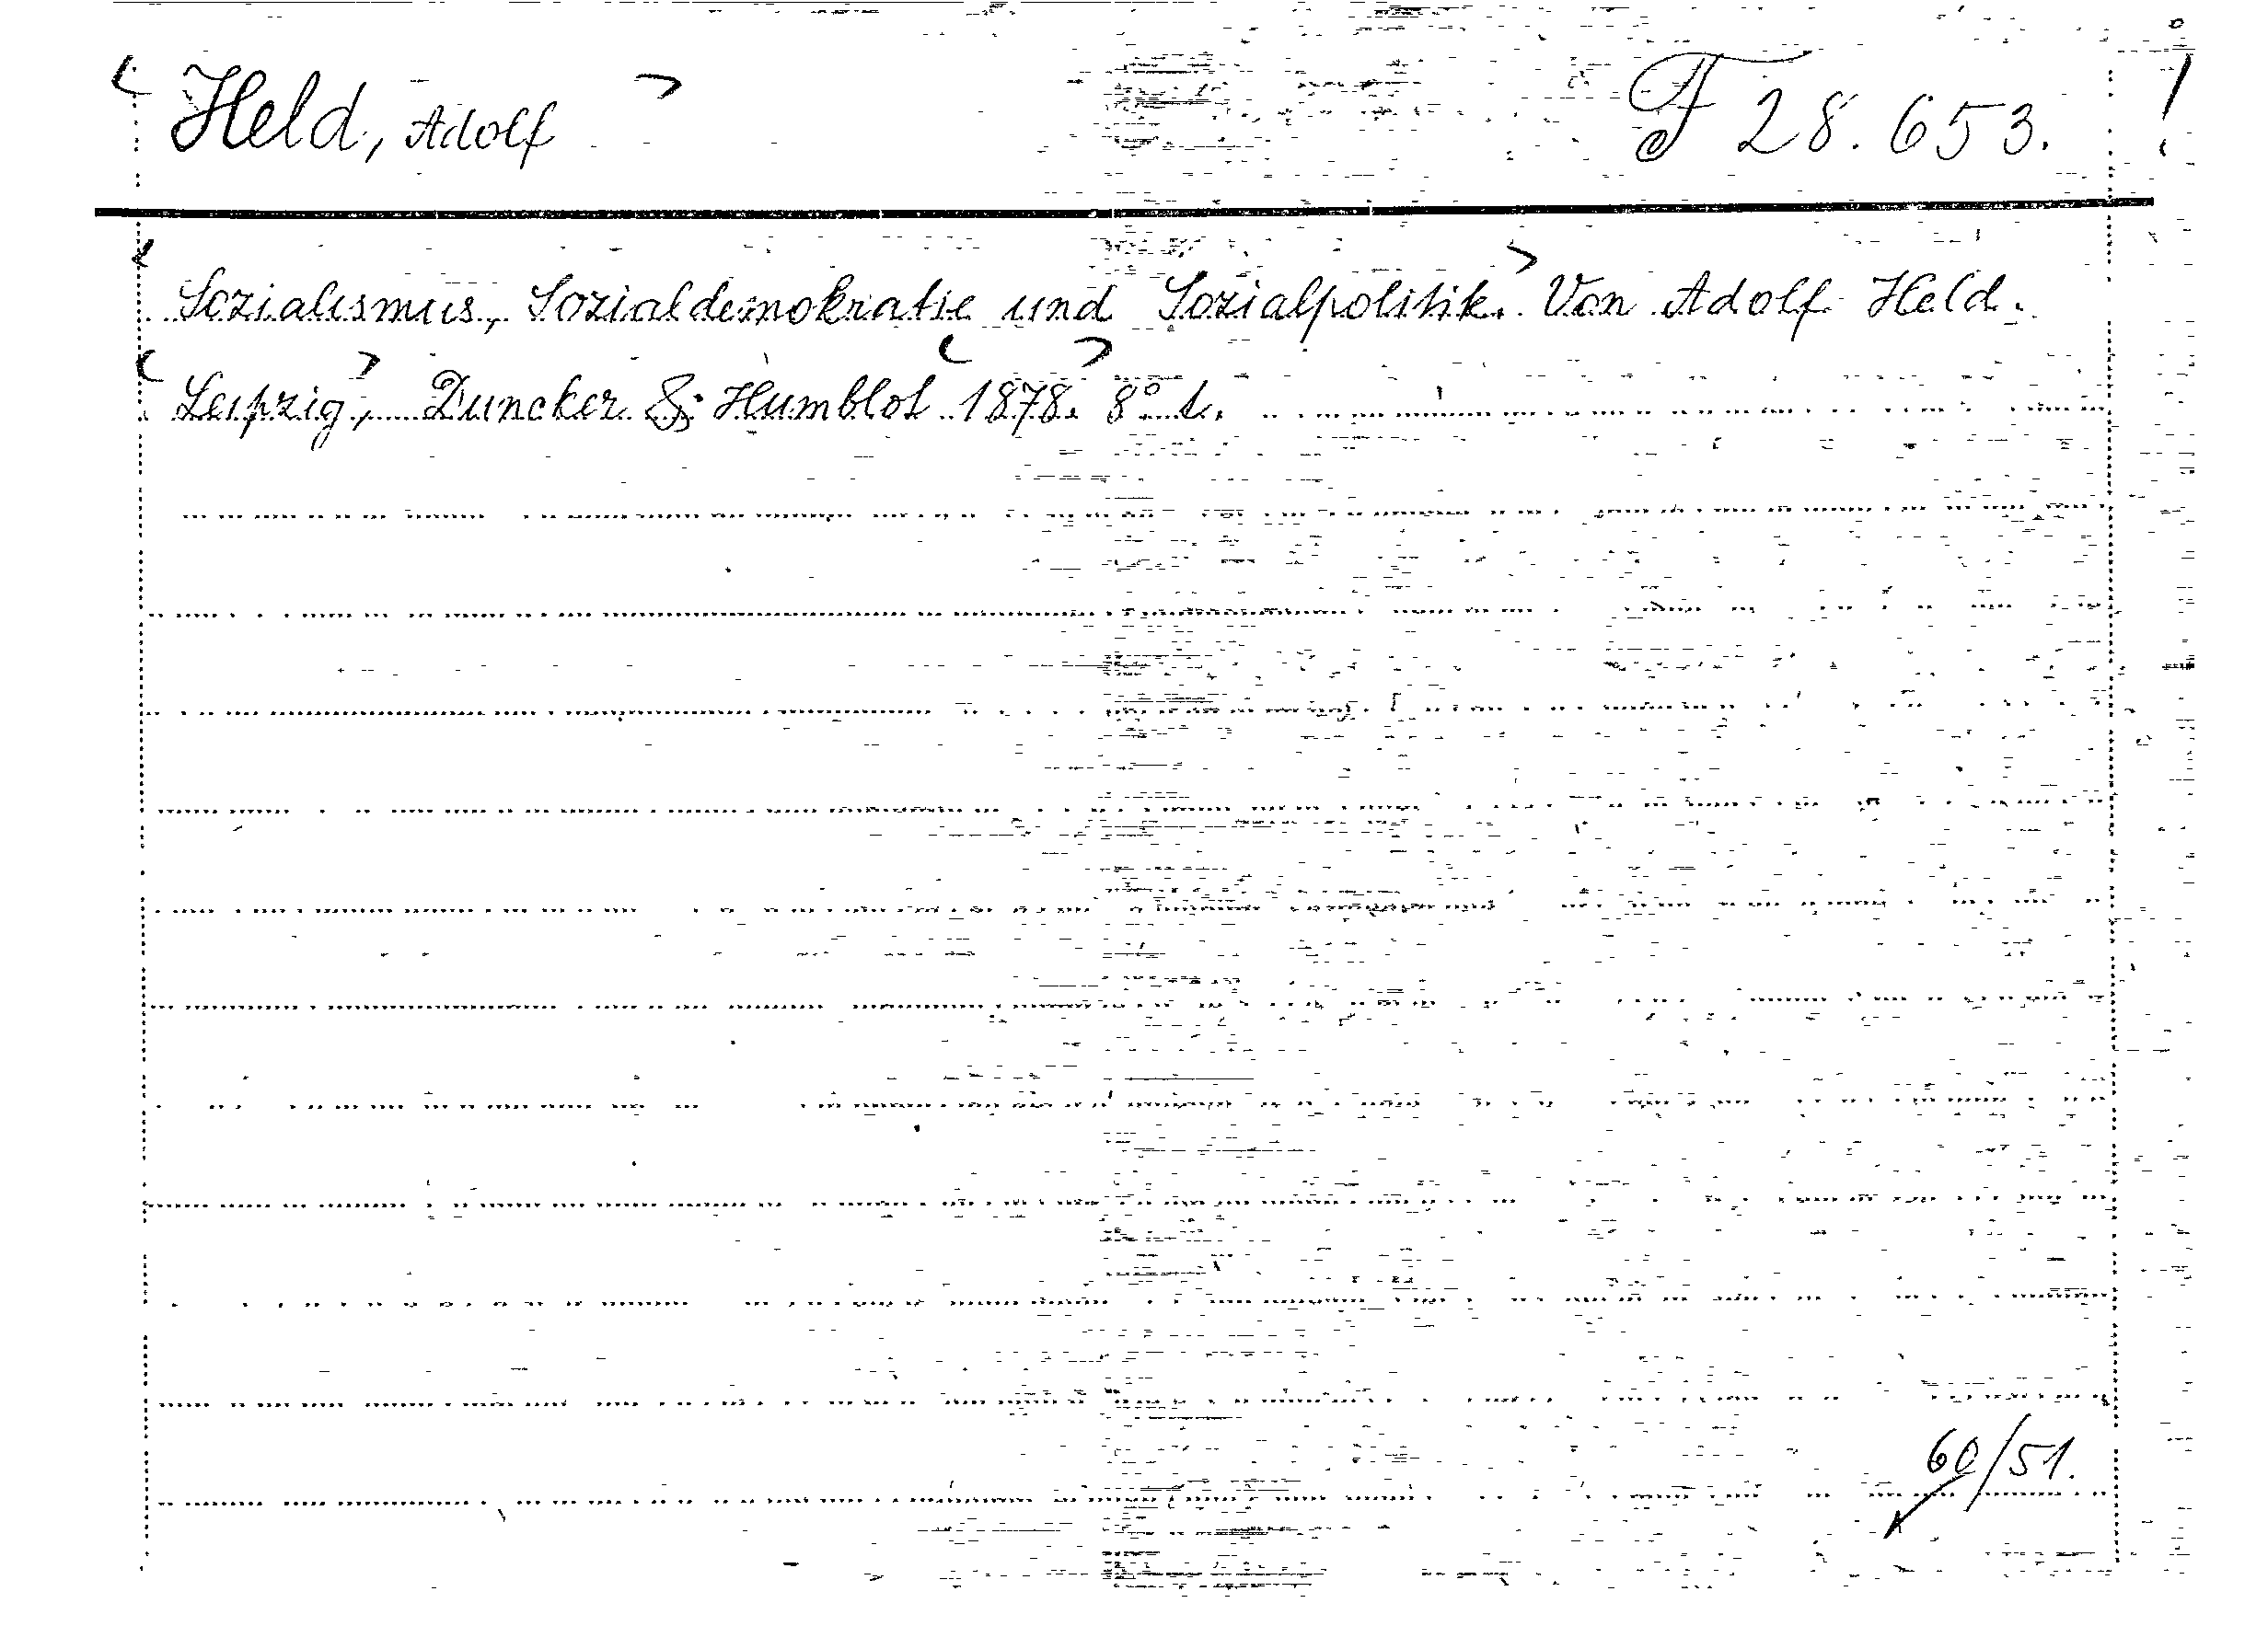 Held, Adolf F 28.653.
Sozialismus, Sozialdemokratie und Sozialpolitik. Von Adolf Held.
Leipzig, Duncker & Humblot 1878. 8° t.
60/51.